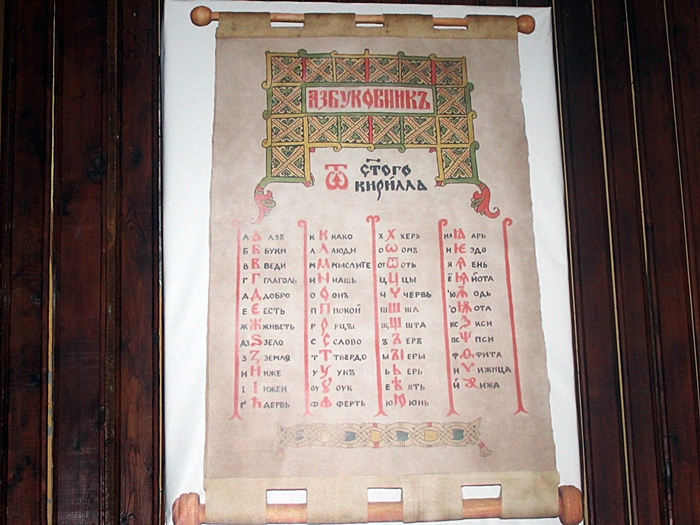 АЗБУКОВНИКЪ
Ѿ СТОГО
КИРИЛЛА
А А АЗЪ
Б Б БУКИ
В В ВЕДИ
Г Г ГЛАГОЛЬ
Д Д ДОБРО
Е Є ЕСТЬ
Ж Ж ЖИВЕТЬ
ДЗ Ѕ ЗЕЛО
З З ЗЕМЛЯ
И И ИЖЕ
І І ІЖЕИ
Ґ Ћ ДЕРВЬ
К К КАКО
Л Л ЛЮДИ
М М МЫСЛИТЕ
Н Н НАШЬ
О О ОНЪ
П П ПОКОЙ
Р Р РЦЪІ
С С СЛОВО
Т Т ТВЕРДО
У У УНЪ
ОУ Ѹ ОУК
Ф Ф ФЕРТЬ
Х Х ХЕРЬ
О Ѡ ОМЪ
ОТ Ѿ ОТЬ
Ц Ц ЦЫ
Ч Ч ЧЕРВЬ
Ш Ш ША
Щ Щ ШТА
Ъ Ъ ЕРЪ
Ы ЪІ ЕРЫ
Ь Ь ЕРЬ
Е Ѣ ЯТЬ
Ю Ю ЮНЬ
АРЬ
ЭДО
ЕНЬ
ЙОТА
ОДЬ
ОТА
КС Ѯ КСИ
ПС Ѱ ПСИ
Ф Ѳ ФИТА
И Ѵ ИЖИЦА
ИЖА